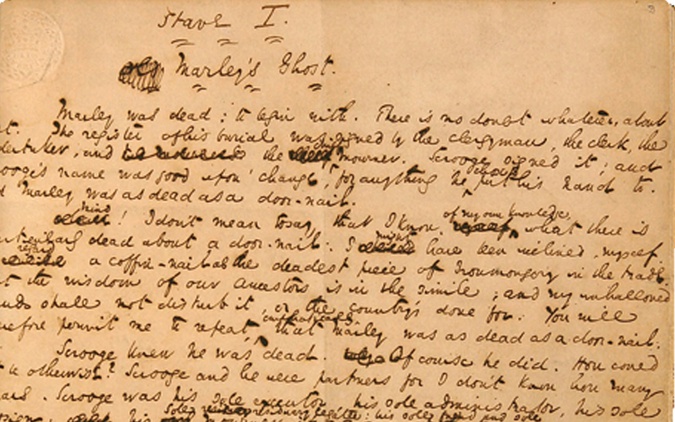 Stave I.
Marley's Ghost.
Marley was dead: to begin with. There is no doubt whatever, about
t. The register of his burial was signed by the clergyman, the clerk, the
dertaker, and the chief mourner. Scrooge signed it; and
ooge's name was good upon 'change, for anything he chose to put his hand to.
d Marley was as dead as a door-nail.
mind! I don't mean to say, that I know, of my own knowledge, what there is
articularly dead about a door-nail. I might have been inclined, myself
regard a coffin-nail as the deadest piece of Ironmongery in the trade.
t the wisdom of our Ancestors is in the simile; and my unhallowed
ands shall not disturb it, or the Country's done for. You will
refore permit me to repeat, emphatically, that Marley was as dead as a door-nail.
Scrooge knew he was dead. Of course he did. How could
t be otherwise? Scrooge and he were partners for I don't know how many
ears. Scrooge was his sole executor, his sole administrator, his sole
assign, his sole residuary legatee: his sole friend and sole